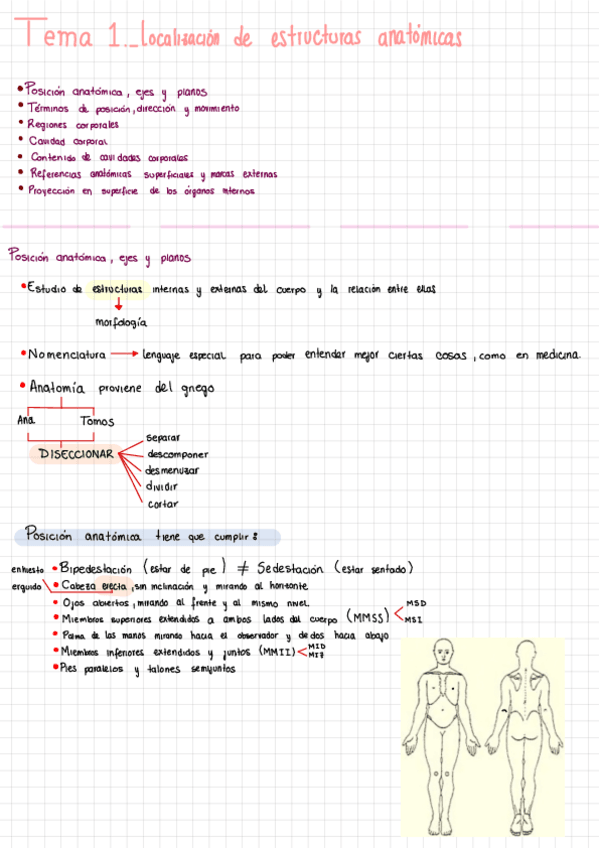 Tema 1._Localización de estructuras anatómicas
• Posición anatómica, ejes y planos
• Términos de posición, dirección y movimiento
• Regiones corporales
• Cavidad corporal
• Contenido de cavidades corporales
• Referencias anatómicas superficiales y marcas externas
• Proyección en superficie de los órganos internos
Posición anatómica, ejes y planos
• Estudio de estructuras internas y externas del cuerpo y la relación entre ellas
morfología
• Nomenclatura → lenguaje especial para poder entender mejor ciertas cosas, como en medicina.
• Anatomía proviene del griego
Ana Tomos
separar
DISECCIONAR descomponer
desmenuzar
dividir
cortar
Posición anatómica tiene que cumplir:
enhiesto • Bipedestación (estar de pie) ≠ Sedestación (estar sentado)
erguido • Cabeza erecta, sin inclinación y mirando al horizonte
• Ojos abiertos, mirando al frente y al mismo nivel.
• Miembros superiores extendidos a ambos lados del cuerpo (MMSS) < MSD
MSI
• Palma de las manos mirando hacia el observador y dedos hacia abajo
• Miembros inferiores extendidos y juntos (MMII) < MID
MIJ
• Pies paralelos y talones semijuntos